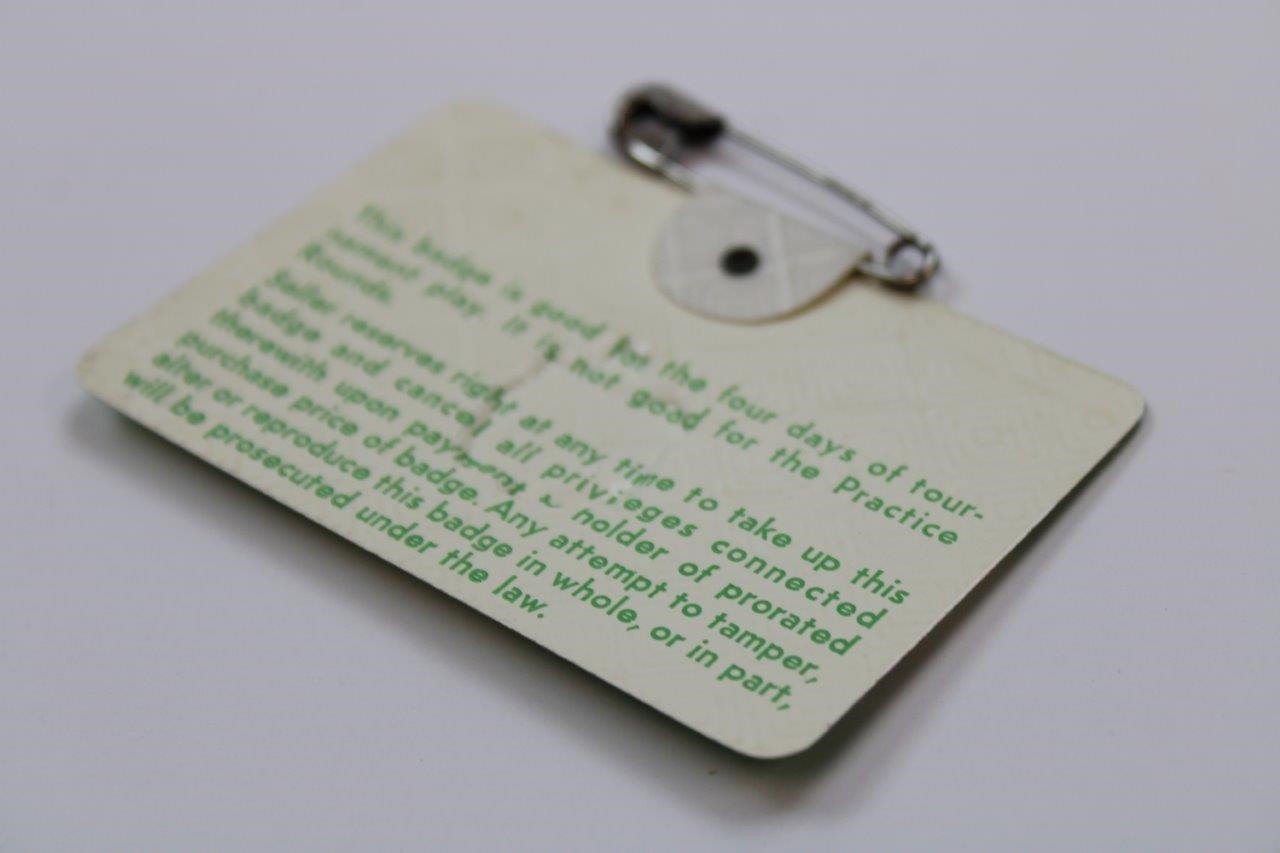 This badge is good for the four days of tour-
nament play. It is not good for the Practice
Rounds.
Seller reserves right at any time to take up this
badge and cancel all privileges connected
therewith upon payment holder of prorated
purchase price of badge. Any attempt to tamper,
alter or reproduce this badge in whole, or in part,
will be prosecuted under the law.